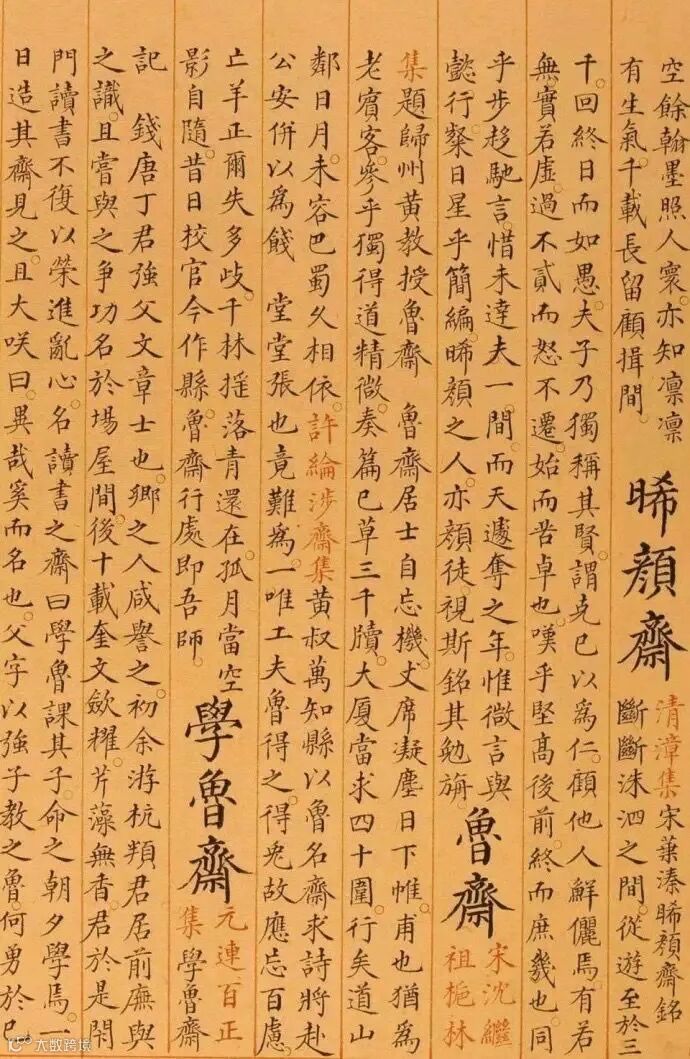 空餘翰墨照人寰亦知凛凛
有生氣千載長留顧揖間
晞顏齋
清漳集宋葉溱晞顏齋銘
斷斷洙泗之間從遊至於三
千回終日而如愚夫子乃獨稱其賢謂克己以為仁顧他人鮮儷焉有若
無實若虛過不貳而怒不遷始而苦卓也嘆乎堅髙後前終而庶幾也同
乎步移馳言惜未達夫一間而天遽奪之年惟微言與
懿行粲日星乎簡編晞顏之人亦顏徒視斯銘其勉旃
魯齋
宋沈繼
祖梔林
集題歸州黄教授魯齋 魯齋居士自忘機丈席凝塵日下帷甫也猶為
老賓客參乎獨得道精微奏篇已草三千牘大厦當求四十圍行矣道山
鄰日月未容巴蜀久相依許綸涉齋集黄叔萬知縣以魯名齋求詩將赴
公安併以為餞 堂堂張也竟難為一唯工夫魯得之得兔故應忘百慮
亡羊正爾失多歧千林揺落青還在孤月當空
影自隨昔日校官今作縣魯齋行處即吾師
學魯齋
元連百正
集學魯齋
記 錢唐丁君強父文章士也鄉之人咸譽之初余游杭頖君居前廡與
之識且嘗與之争功名於場屋間後十載奎文歛耀芹藻無香君於是閇
門讀書不復以榮進亂心名讀書之齋曰學魯課其子命之朝夕學焉一
日造其齋見之且大咲曰異哉奚而名也父字以強子教之魯何勇於己
大数跨境